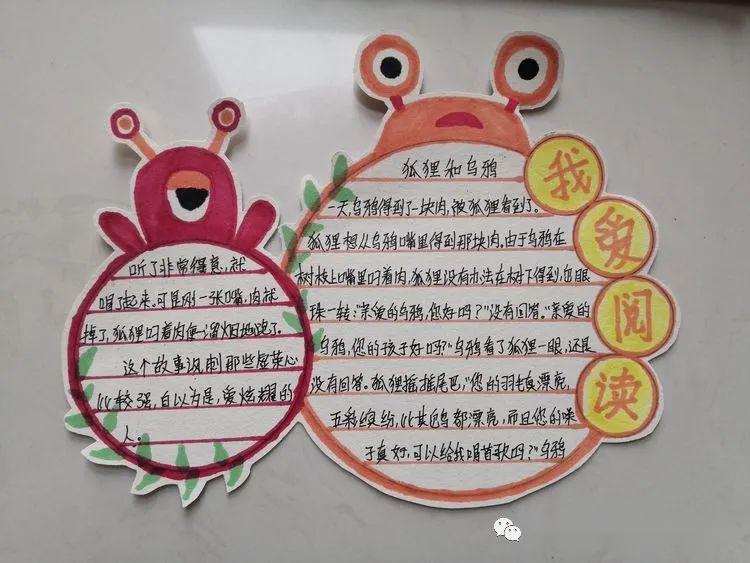 我爱阅读
狐狸和乌鸦
一天,乌鸦得到了一块肉,被狐狸看到了。
狐狸想从乌鸦嘴里得到那块肉,由于乌鸦在
树枝上嘴里叼着肉,狐狸没有办法在树下得到,它眼
珠一转:“亲爱的乌鸦,您好吗?”没有回答。“亲爱的
乌鸦,您的孩子好吗?”乌鸦看了狐狸一眼,还是
没有回答。狐狸摇摇尾巴,“您的羽毛真漂亮,
五彩缤纷,比其他鸟都漂亮,而且您的嗓
子真好,可以给我唱首歌吗?”乌鸦
听了非常得意,就
唱了起来。可是刚一张嘴,肉就
掉了,狐狸叼着肉便一溜烟地跑了。
这个故事讽刺那些虚荣心
比较强,自以为是,爱炫耀的
人。